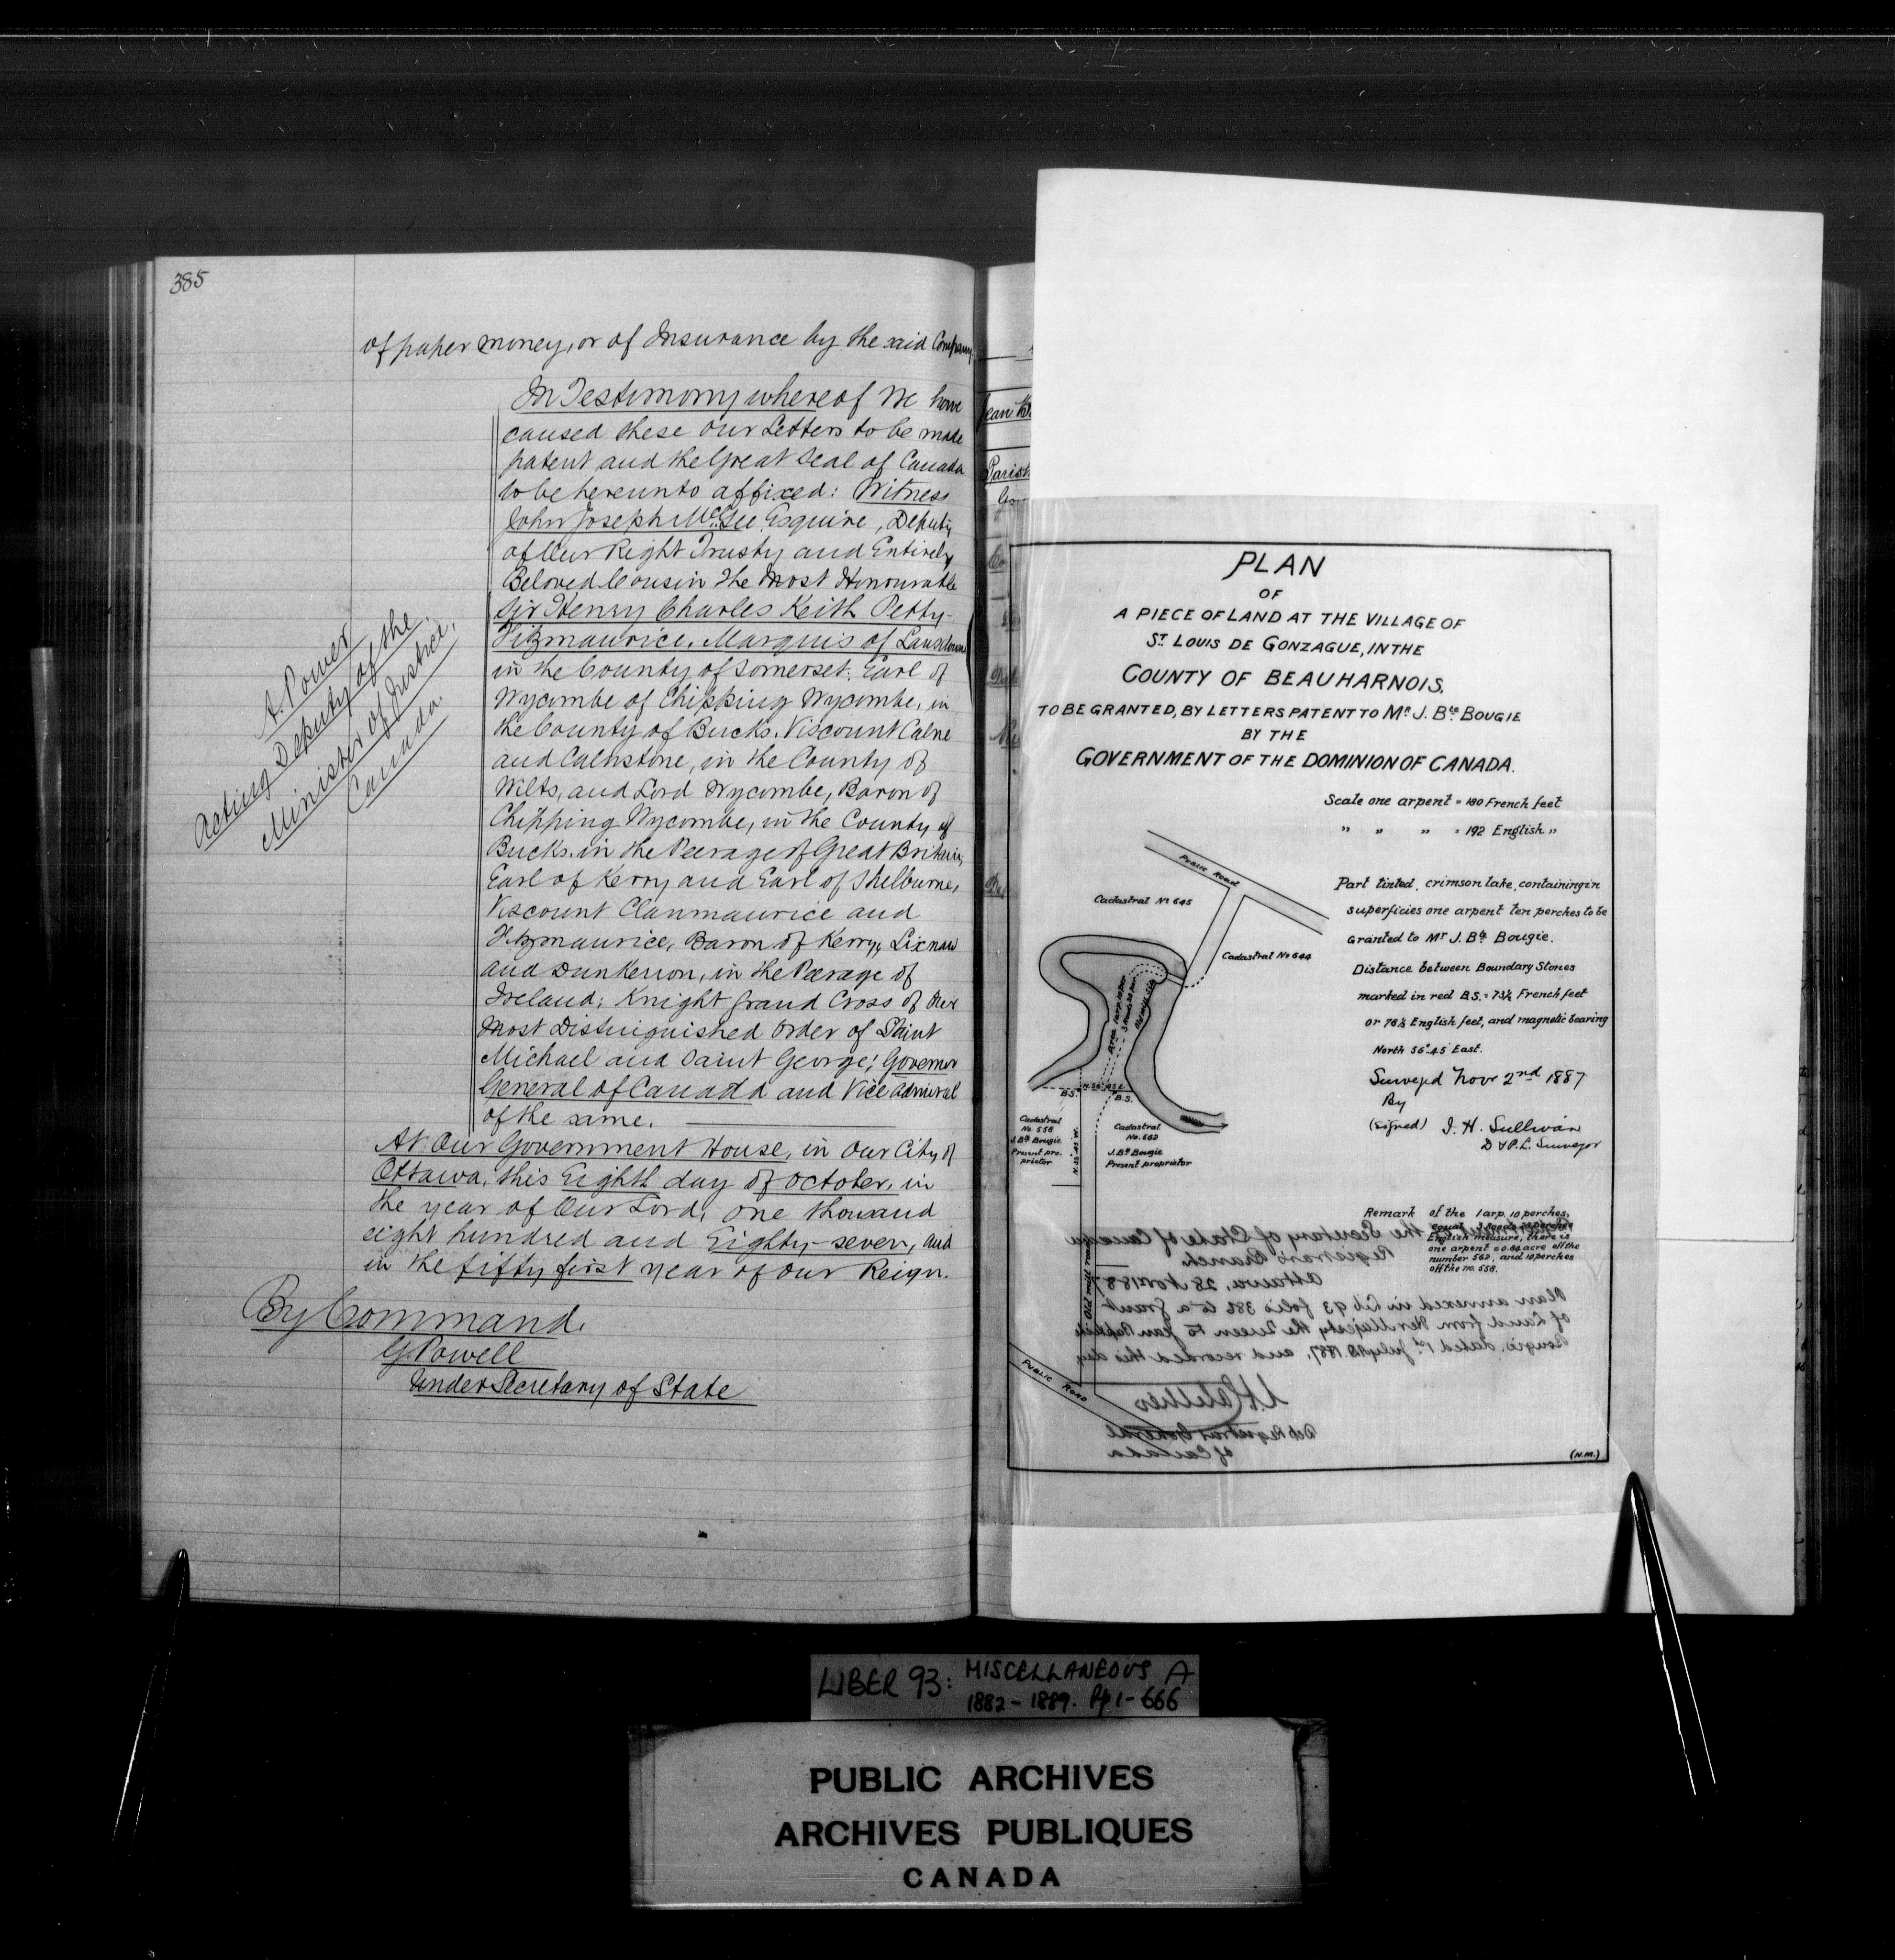 385
of paper money, or of Insurance by the said Company
In Testimony whereof We have
caused these Our Letters to be made
patent and the Great Seal of Canada
to be hereunto affixed: Witness
John Joseph McGee Esquire, Deputy
of Our Right Trusty and Entirely
Beloved Cousin The Most Honourable
Sir Henry Charles Keith Petty-
Fitzmaurice, Marquis of Lansdowne
in the County of Somerset, Earl of
Wycombe of Chipping Wycombe, in
the County of Bucks, Viscount Calne
and Calnstone, in the County of
Wilts, and Lord Wycombe, Baron of
Chipping Wycombe, in the County of
Bucks, in the Peerage of Great Britain,
Earl of Kerry and Earl of Shelburne,
Viscount Clanmaurice and
Fitzmaurice, Baron of Kerry, Lixnaw
and Dunkerron, in the Peerage of
Ireland; Knight Grand Cross of Our
Most Distinguished Order of Saint
Michael and Saint George; Governor
General of Canada and Vice Admiral
of the same.
At Our Government House, in Our City of
Ottawa, this Eighth day of October, in
the year of Our Lord, one thousand
eight hundred and Eighty-seven, and
in the fifty first year of Our Reign.
By Command.
G Powell
Under Secretary of State
A. Power
Acting Deputy of the
Minister of Justice,
Canada.
Jean B
Parish
PLAN
OF
A PIECE OF LAND AT THE VILLAGE OF
ST. LOUIS DE GONZAGUE, IN THE
COUNTY OF BEAUHARNOIS.
TO BE GRANTED, BY LETTERS PATENT TO MR J. BTE BOUGIE
BY THE
GOVERNMENT OF THE DOMINION OF CANADA.
Scale one arpent = 180 French feet
" " " = 192 English "
Part tinted, crimson lake, containing in
superficies one arpent ten perches to be
granted to Mr J. Bte Bougie.
Distance between Boundary Stones
marked in red B.S. = 73½ French feet
or 78½ English feet, and magnetic bearing
North 56°45 East.
Surveyd Novr 2nd 1887
By
(signed) J. H. Sullivan
D & P.L. Surveyor
PUBLIC ROAD
Cadastral No 645
Cadastral No 644
Area 1 arp. 10 per
Old mill site
N. 56° 45 E.
B.S.
B.S.
Cadastral
No. 558
J. Bte Bougie
Present pro-
prietor
Cadastral
No. 562
J. Bte Bougie
Present proprietor
Old mill road
PUBLIC ROAD
Remark of the 1 arp. 10 perches,
equal 3 roods 28 perches
English measure, there is
one arpent = 0.84 acre off the
number 562, and 10 perches
off the no. 558.
the Secretary of State of Canada
Registrar's Branch
Ottawa, 28 Nov 1887
Plan annexed in Lib 93 folio 386 to a Grant
of Land from Her Majesty the Queen to Jean Baptiste
Bougie, dated 1st July A.D. 1887, and recorded this day
Dep Registrar General
of Canada
(N.M.)
LIBER 93: MISCELLANEOUS A
1882-1889. Pp 1-666
PUBLIC ARCHIVES
ARCHIVES PUBLIQUES
CANADA